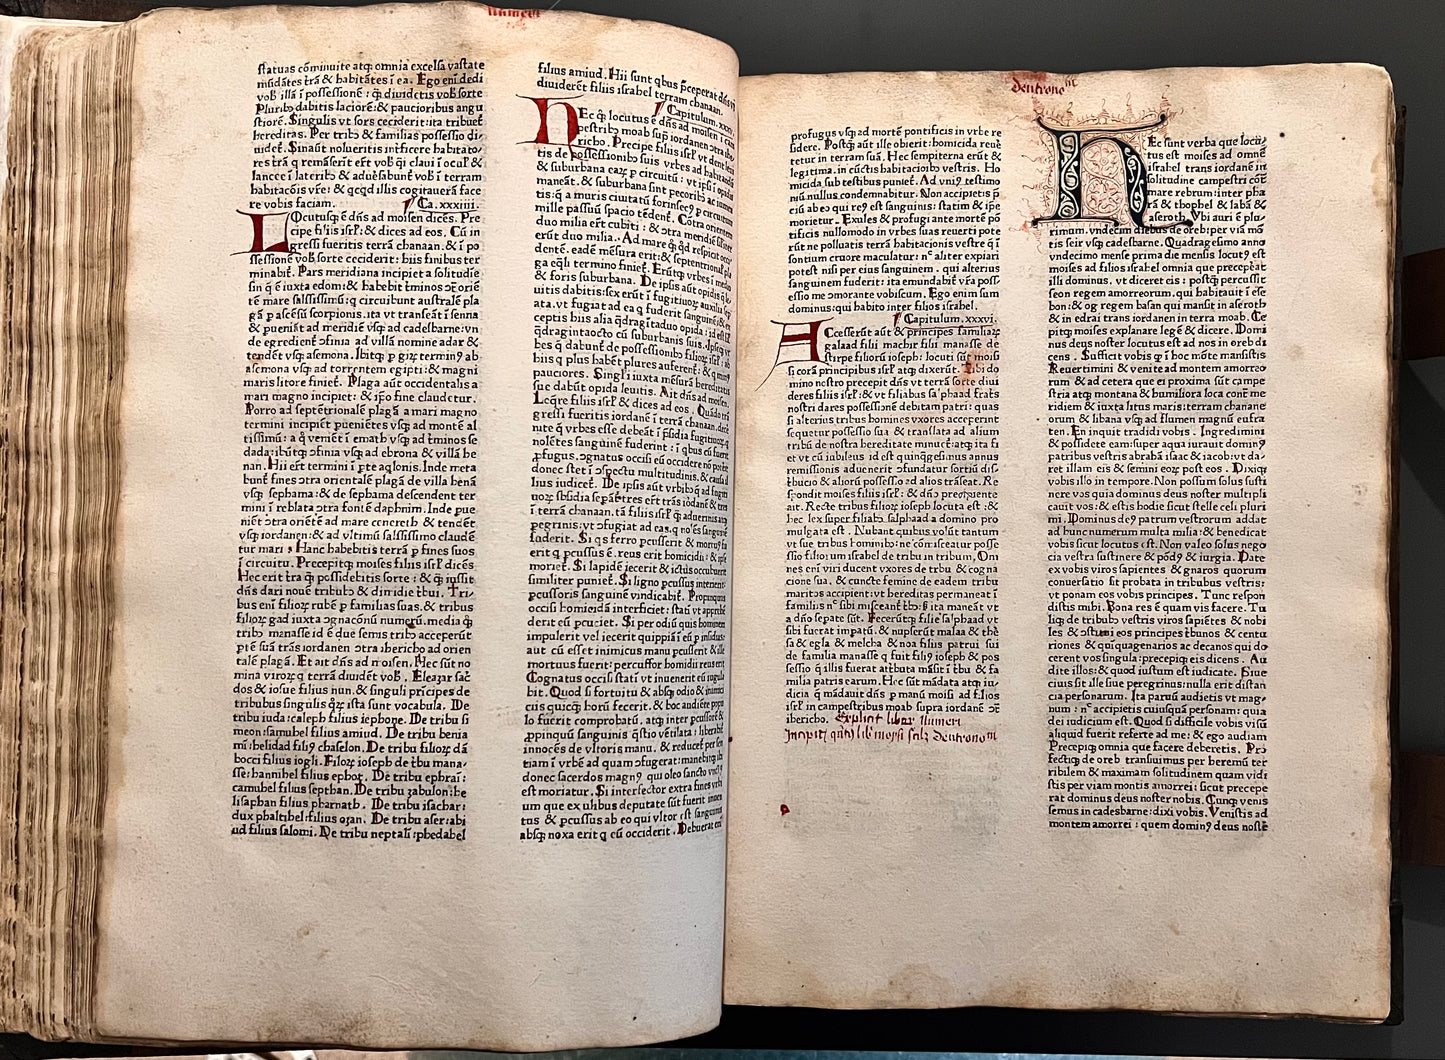 Numeri
statuas cõminuite atqȝ omnia excelsa vastate
mũdãtes trã & habitãtes ĩ ea. Ego eni dedi
vob illã ĩ possessionẽ: q̃ diuidetis vob sorte
Pluribȝ dabitis laciorẽ: & paucioribus angu
stiorẽ. Singulis vt sors ceciderit: ita tribuet̃
hereditas. Per tribȝ & familias possessio di-
uidet̃. Sin aũt nolueritis inficere habitato-
res trã q remãserĩt
lancee ĩ lateribȝ & aduersabunt̃ vob ĩ terram
re vobis faciam. Ca. xxxiiii.
LOcutusqȝ ẽ dñs ad moisen dicẽs. Pre
cipe filiis isrł & dices ad eos. Cũ in
gressi fueritis terrã chanaan. & ĩ po
ssessionẽ vob sorte ceciderit: hiis finibus ter
minabit̃. Pars meridiana incipiet a solitudie
sin q̃ ẽ iuxta edom: & habebit t̃minos ɔtrª oriẽ
tẽ mare salsissimũ: q circuibunt australẽ pla
gã ꝑ ascẽsũ scorpionis. ita vt trãseãt ĩ senna
& pueniãt ad meridiẽ vsqȝ ad cadesbarne: vn
de egredient̃ ɔfinia ad villã nomine adar &
tendẽt vsqȝ asemona. Ibitqȝ ꝑ girȝ termin9 ab
asemona vsqȝ ad torrentem egipti: & magni
maris litore finiet̃. Plaga aũt occidentalis a
mari magno incipiet: & ip̃o fine claudetur.
Porro ad septẽtrionalẽ plagã a mari magno
termini incipiẽt pueniẽtes vsqȝ ad montẽ al
tissimũ: a q̃ veniẽt ĩ emath vsqȝ ad t̃minos se
dada: ibũtqȝ ɔfinia vsqȝ ad ebrona & villã he
nan. Hii ert̃ termini ĩ ꝑte aq̃lonis. Inde meta
bunt̃ fines ɔtra orientalẽ plagã de villa henã
vsqȝ sephama: & de sephama descendent ter
mini ĩ reblata ɔtra fontẽ daphnim. Inde ꝑue
niẽt ɔtra oriẽtẽ ad mare cenereth & tendẽt
vsqȝ iordanen: & ad vltimũ salsissimo claudẽ
tur mari. Hanc habebitis terrã ꝑ fines suos
ĩ circuitu. Precepitqȝ moises filiis isrł dicẽs
Hec erit t̃ra q̃ possidebitis sorte: & q̃ iussit
dñs dari nouẽ tribubȝ & dimidie t̃bui. Tri-
bus eni filiorȝ rubẽ ꝑ familias suas. & tribus
filiorȝ gad iuxta ɔgnacõnũ numerũ. media q̃
tribȝ manasse id ẽ due semis tribȝ acceperũt
ꝑtẽ suã trãs iordanen ɔtra ihericho ad orien
talẽ plagã. Et ait dñs ad moisen. Hec sũt no
mina virorȝ q terrã diuidẽt vob. Eleazar sac̃
dos & iosue filius nun. & singuli prĩcipes de
tribubus singulis qȝ ista sunt vocabula. De
tribu iuda: caleph filius iephone. De tribu si
meon: samuhel filius amiud. De tribu benia
mi: helidad fili9 chaselon. De tribu filiorȝ dã
bocci filius iogli. Filiorȝ ioseph de t̃bu mana-
sse: hannihel filius ephot. De tribu ephrai:
camuhel filius septhan. De tribu zabulon: he
lisaphan filius pharnath. De tribu isachar:
dux phaltihel: filius ozan. De tribu aser: abi
ud filius salomi. De tribu neptali: phedahel
filius amiud. Hii sunt qbus p̃ceperat dñs vt
diuiderẽt filiis israhel terram chanaan.
Capitulum. xxxv.
NEc q̃ locutus ẽ dñs ad moisen ĩ cam
pestribȝ moab sup̃ iordanen ɔtra ihe
richo. Precipe filiis isrł vt dent leui
tis de possessionibȝ suis vrbes ad habitandũ
& suburbana earȝ ꝑ circuitũ: vt ip̃si ĩ opidis
maneãt. & suburbana sint pecoribȝ ac iumen
tis: q̃ a muris ciuitatũ forinsec9 ꝑ circuitum
mille passuũ spacio tẽdent̃. Cõtra orientem
duo milia ert̃ cubiti: & ɔtra meridiẽ silʼiter
erũt duo milia. Ad mare q̃ qd respicit occi
dentẽ. eadẽ mẽsura erit: & septentrional̃ pla
ga eqli termino finiet̃. Erũtqȝ vrbes ĩ medio
& foris suburbana. De ipsis aũt opidis q̃ le
uitis dabitis: sex erũt ĩ fugitiuorȝ auxilia sep
ata. vt fugiat ad ea q̃ fuderit sanguinẽ: & ex
ceptis hiis alia q̃dragĩtaduo opida: id est sĩl
q̃dragintaocto cũ suburbanis suis. Ipseqȝ vr
bes q̃ dabunt̃ de possessionibȝ filiorȝ isrł: ab
hiis q plus habẽt plures auferent̃: & q min9
pauciores. Singłi iuxta mẽsurã hereditatis
sue dabũt opida leuitis. Ait dñs ad moisen.
Loq̃re filiis isrł & dices ad eos. Quãdo trãs
gressi fueritis iordanẽ ĩ terrã chanaan. decer
nite q̃ vrbes esse debeãt ĩ p̃sidia fugitiuorȝ q
nolẽtes sanguinẽ fuderint: ĩ qbus cũ fuerit
ꝓfugus. ɔgnatus occisi eũ occidere nõ poterit
donec stet ĩ ɔspectu multitudinis. & causa il
lius iudicet̃. De ipsis aũt vrbibȝ q̃ ad fugiti
uorȝ sbsidia sepãbt̃: tres ert̃ trãs iordanẽ & tres
ĩ terrã chanaan. tã filiis isrł q̃ aduenis atqȝ
peregrinis: vt ɔfugiat ad eas. q nõ ẽs sanguinẽ
fuderit. Si qs ferro pcusserit & mortu9 fu
erit q pcussus ẽ. reus erit homicidii: & ip̃se
moriet̃. Si lapidẽ iecerit & ictus occubuerit
similiter puniet̃. Si ligno pcussus interierit:
pcussoris sanguinẽ vindicabit̃. Propinquus
occisi homicidã interficiet: stati vt apprehẽ
derit eũ pcuciet. Si per odiũ quis hominem
impulerit vel iecerit quippiã ĩ eũ p insidias:
aut cũ esset inimicus manu pcusserit & ille
mortuus fuerit: percussor homidii reus erit
Cognatus occisi stati vt inuenerit eũ iugula
bit. Quod si fortuitu & absqȝ odio & inimici
ciis quicq̃ horũ fecerit. & hoc audiẽte popu
lo fuerit comprobatũ. atqȝ inter pcussorẽ &
ꝓpinquũ sanguinis q̃stio vẽtilata: liberabit̃
innocẽs de vltoris manu. & reducet̃ per sen
tiam ĩ vrbẽ ad quam ɔfugerat: manebitqȝ ibi
donec sacerdos magn9 qui oleo sancto vnct9
est moriatur. Si interfector extra fines vrbi
um que exulibus deputate sũt fuerit inuen
tus & pcussus ab eo qui vltor est sanguinis
absqȝ noxa erit q eũ occiderit. Debuerat eni
deutronom̃
profugus vsqȝ ad mortẽ pontificis in vrbe re
sidere. Postq̃ aũt ille obierit: homicida reuẽ
tetur in terram suã. Hec sempiterna erũt &
legitima. in cũctis habitacioibȝ vestris. Ho
micida sub testibus puniet̃. Ad vni9 testimo
niũ nullus condemnabitur. Non accipietis p̃
ciũ ab eo qui re9 est sanguinis: statim & ip̃e
morietur. Exules & profugi ante mortẽ põ
tificis nullomodo in vrbes suas reuerti pote
rũt ne polluatis terrã habitacionis vestre q̃ ĩ
sontium cruore maculatur: nᶜ aliter expiari
potest nisi per eius sanguinem. qui alterius
sanguinem fuderit: ita emundabit̃ vr̃a poss-
essio me ɔmorante vobiscum. Ego enim sum
dominus: qui habito inter filios israhel.
Capitulum. xxxvi.
ACcesserũt aũt & principes familiarȝ
galaad filii machir filii manasse de
stirpe filiorũ ioseph: locuti sũt moisi
ſi corã principibus isrł atqȝ dixerũt. Tibi do
mino nostro precepit dñs vt terrã sorte diui
deres filiis isrł: & vt filiabus salphaad fratis
nostri dares possessionẽ debitam patri: quas
si alterius tribus homines vxores acceperint
sequetur possessio sua & translata ad alium
tribũ de nostra hereditate minuet̃: atqȝ ita fi
et vt cũ iubileus id est quinq̃gesimus annus
remissionis aduenerit ɔfundatur sortiũ dis-
t̃bucio & aliorũ possessio ad alios trãseat. Re
spondit moises filiis isrł: & dño precipiente
ait. Recte tribus filiorȝ ioseph locuta est: &
hec lex super filiabȝ salphaad a domino pro
mulgata est. Nubant quibus volũt tantum
vt sue tribus hominibȝ: ne cõmisceatur posse
ssio filiorum israhel de tribu in tribum. Om
nes eni viri ducent vxores de trbu & cogna
cione sua. & cuncte femine de eadem tribu
maritos accipient: vt hereditas permaneat ĩ
familiis nᶜ sibi misceant̃ t̃bȝ: sȝ ita maneãt vt
a dño sepate sũt. Fecerũtqȝ filie salphaad vt
sibi fuerat impatũ. & nupserũt malaa & thẽ
sa & egla & melcha & noa filiis patrui sui
de familia manasse q fuit fili9 ioseph & pos
sessio q̃ illis fuerat att̃buta mãsit ĩ t̃bu & fa
milia patris earum. Hec sũt mãdata atqȝ iu
dicia q̃ mãdauit dñs ꝑ manũ moisi ad filios
isrł in campestribus moab supra iordanẽ ɔtrª
ihericho. Explicit liber Numeri
Incipit qñtȝ lib̃ moysi scłȝ deutronom̃
HEc sunt verba que locu-
tus est moises ad omnẽ
israhel trans iordanẽ in
solitudine campestri cõt
mare rubrum: inter pha
rã & thophel & labã &
aseroth. Vbi auri ẽ plu-
rimum. vndecim diebus de oreb: per viã mõ
tis seir vsqȝ cadesbarne. Quadragesimo anno
vndecimo mense prima die mensis locut9 est
moises ad filios israhel omnia que preceperat
illi dominus. vt diceret eis: postq̃ percussit
seon regem amorreorum. qui habitauit ĩ ese
bon: & og regem basan qui mansit in aseroth
& in edrai trans iordanen in terra moab. Ce
pitqȝ moises explanare legẽ & dicere. Domi
nus deus noster locutus est ad nos in oreb di
cens. Sufficit vobis q̃ ĩ hoc mõte mansistis
Reuertimini & venite ad montem amorreo
rum & ad cetera que ei proxima sũt campe
stria atqȝ montana & humiliora loca cont̃ me
ridiem & iuxta litus maris: terram chanane
orum & libana vsqȝ ad flumen magnũ eufra
ten. En inquit tradidi vobis. Ingredimini
& possidete eam: super aqua iurauit domin9
patribus vestris abrahã isaac & iacob: vt da-
ret illam eis & semini eorȝ post eos. Dixiqȝ
vobis illo in tempore. Non possum solus susti
nere vos quia dominus deus noster multipli
cauit vos: & estis hodie sicut stelle celi pluri
mi. Dominus de9 patrum vestrorum addat
ad hunc numerum multa milia: & benedicat
vobis sicut locutus est. Non valeo solus nego
cia vestra sustinere & põd9 & iurgia. Date
ex vobis viros sapientes & gnaros quorum
conuersatio sit probata in tribubus vestris:
vt ponam eos vobis principes. Tunc respon
distis mihi. Bona res ẽ quam vis facere. Tu
liqȝ de tribubȝ vestris viros sapiẽtes & nobi
les & ɔstitui eos principes t̃bunos & centu
riones & quiquagenarios ac decanos qui do
cerent vos singula: precepiqȝ eis dicens. Au
dite illos: & quod iustum est iudicate. Siue
ciuis sit ille siue peregrinus: nulla erit distan
cia personarum. Ita paruũ audietis vt mag-
num: nᶜ accipietis cuiusquã personam: quia
dei iudicium est. Quod si difficile vobis visũ
aliquid fuerit referte ad me: & ego audiam
Precepiqȝ omnia que facere deberetis. Pro
fectiqȝ de oreb transiuimus per heremũ ter
ribilem & maximam solitudinem quam vidi
stis per viam montis amorrei: sicut precepe
rat dominus deus noster nobis. Cunqȝ venis
semus in cadesbarne: dixi vobis. Venistis ad
montem amorrei: quem domin9 deus nostẽ